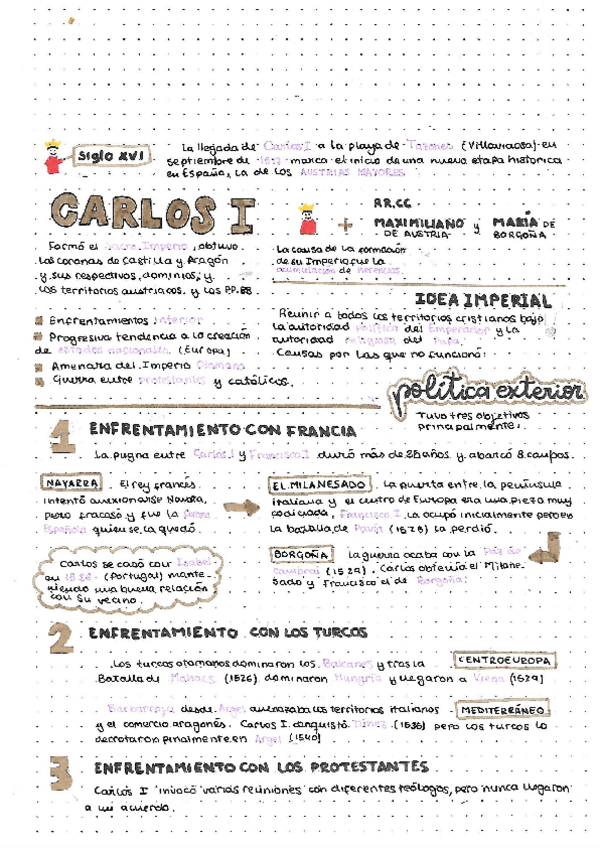 Siglo XVI
La llegada de Carlos I a la playa de Tazones (Villaviciosa) en
septiembre de 1517 marca el inicio de una nueva etapa histórica
en España, la de los AUSTRIAS MAYORES
CARLOS I
+
RR.CC
MAXIMILIANO y MARÍA DE
DE AUSTRIA BORGOÑA
Formó el Sacro Imperio, obtuvo
las coronas de Castilla y Aragón
y sus respectivos dominios, y
los territorios austriacos y los PP.BB
La causa de la formación
de su Imperio fue la
acumulación de herencias.
Enfrentamientos interior
Progresiva tendencia a la creación
de estados nacionales. (Europa)
Amenaza del Imperio Otomano
Guerra entre protestantes y católicos.
IDEA IMPERIAL
Reunir a todos los territorios cristianos bajo
la autoridad política del Emperador y la
autoridad religiosa del Papa.
Causas por las que no funcionó:
política exterior
Tuvo tres objetivos
principalmente:
1 ENFRENTAMIENTO CON FRANCIA
La pugna entre Carlos I y Francisco I duró más de 25 años y abarcó 3 campos.
NAVARRA El rey francés
intentó anexionarse Navarra,
pero fracasó y fue la Corona
Española quien se la quedó
EL MILANESADO La puerta entre la península
italiana y el centro de Europa era una pieza muy
codiciada, Francisco I la ocupó inicialmente pero en
la batalla de Pavía (1525) la perdió.
BORGOÑA La guerra acaba con la Paz de
Cambrai (1529). Carlos obtenía el Milane-
sado y Francisco el de Borgoña.
Carlos se casó con Isabel
en 1526 (Portugal) mante-
niendo una buena relación
con su vecino.
2 ENFRENTAMIENTO CON LOS TURCOS
Los turcos otomanos dominaron los Balcanes y tras la CENTROEUROPA
Batalla de Mohacs (1526) dominaron Hungría y llegaron a Viena (1529)
Barbarroja desde Argel amenazaba los territorios italianos MEDITERRÁNEO
y el comercio aragonés. Carlos I conquistó Túnez (1535) pero los turcos lo
derrotaron finalmente en Argel (1540)
3 ENFRENTAMIENTO CON LOS PROTESTANTES
Carlos I invocó varias reuniones con diferentes teólogos, pero nunca llegaron
a un acuerdo.